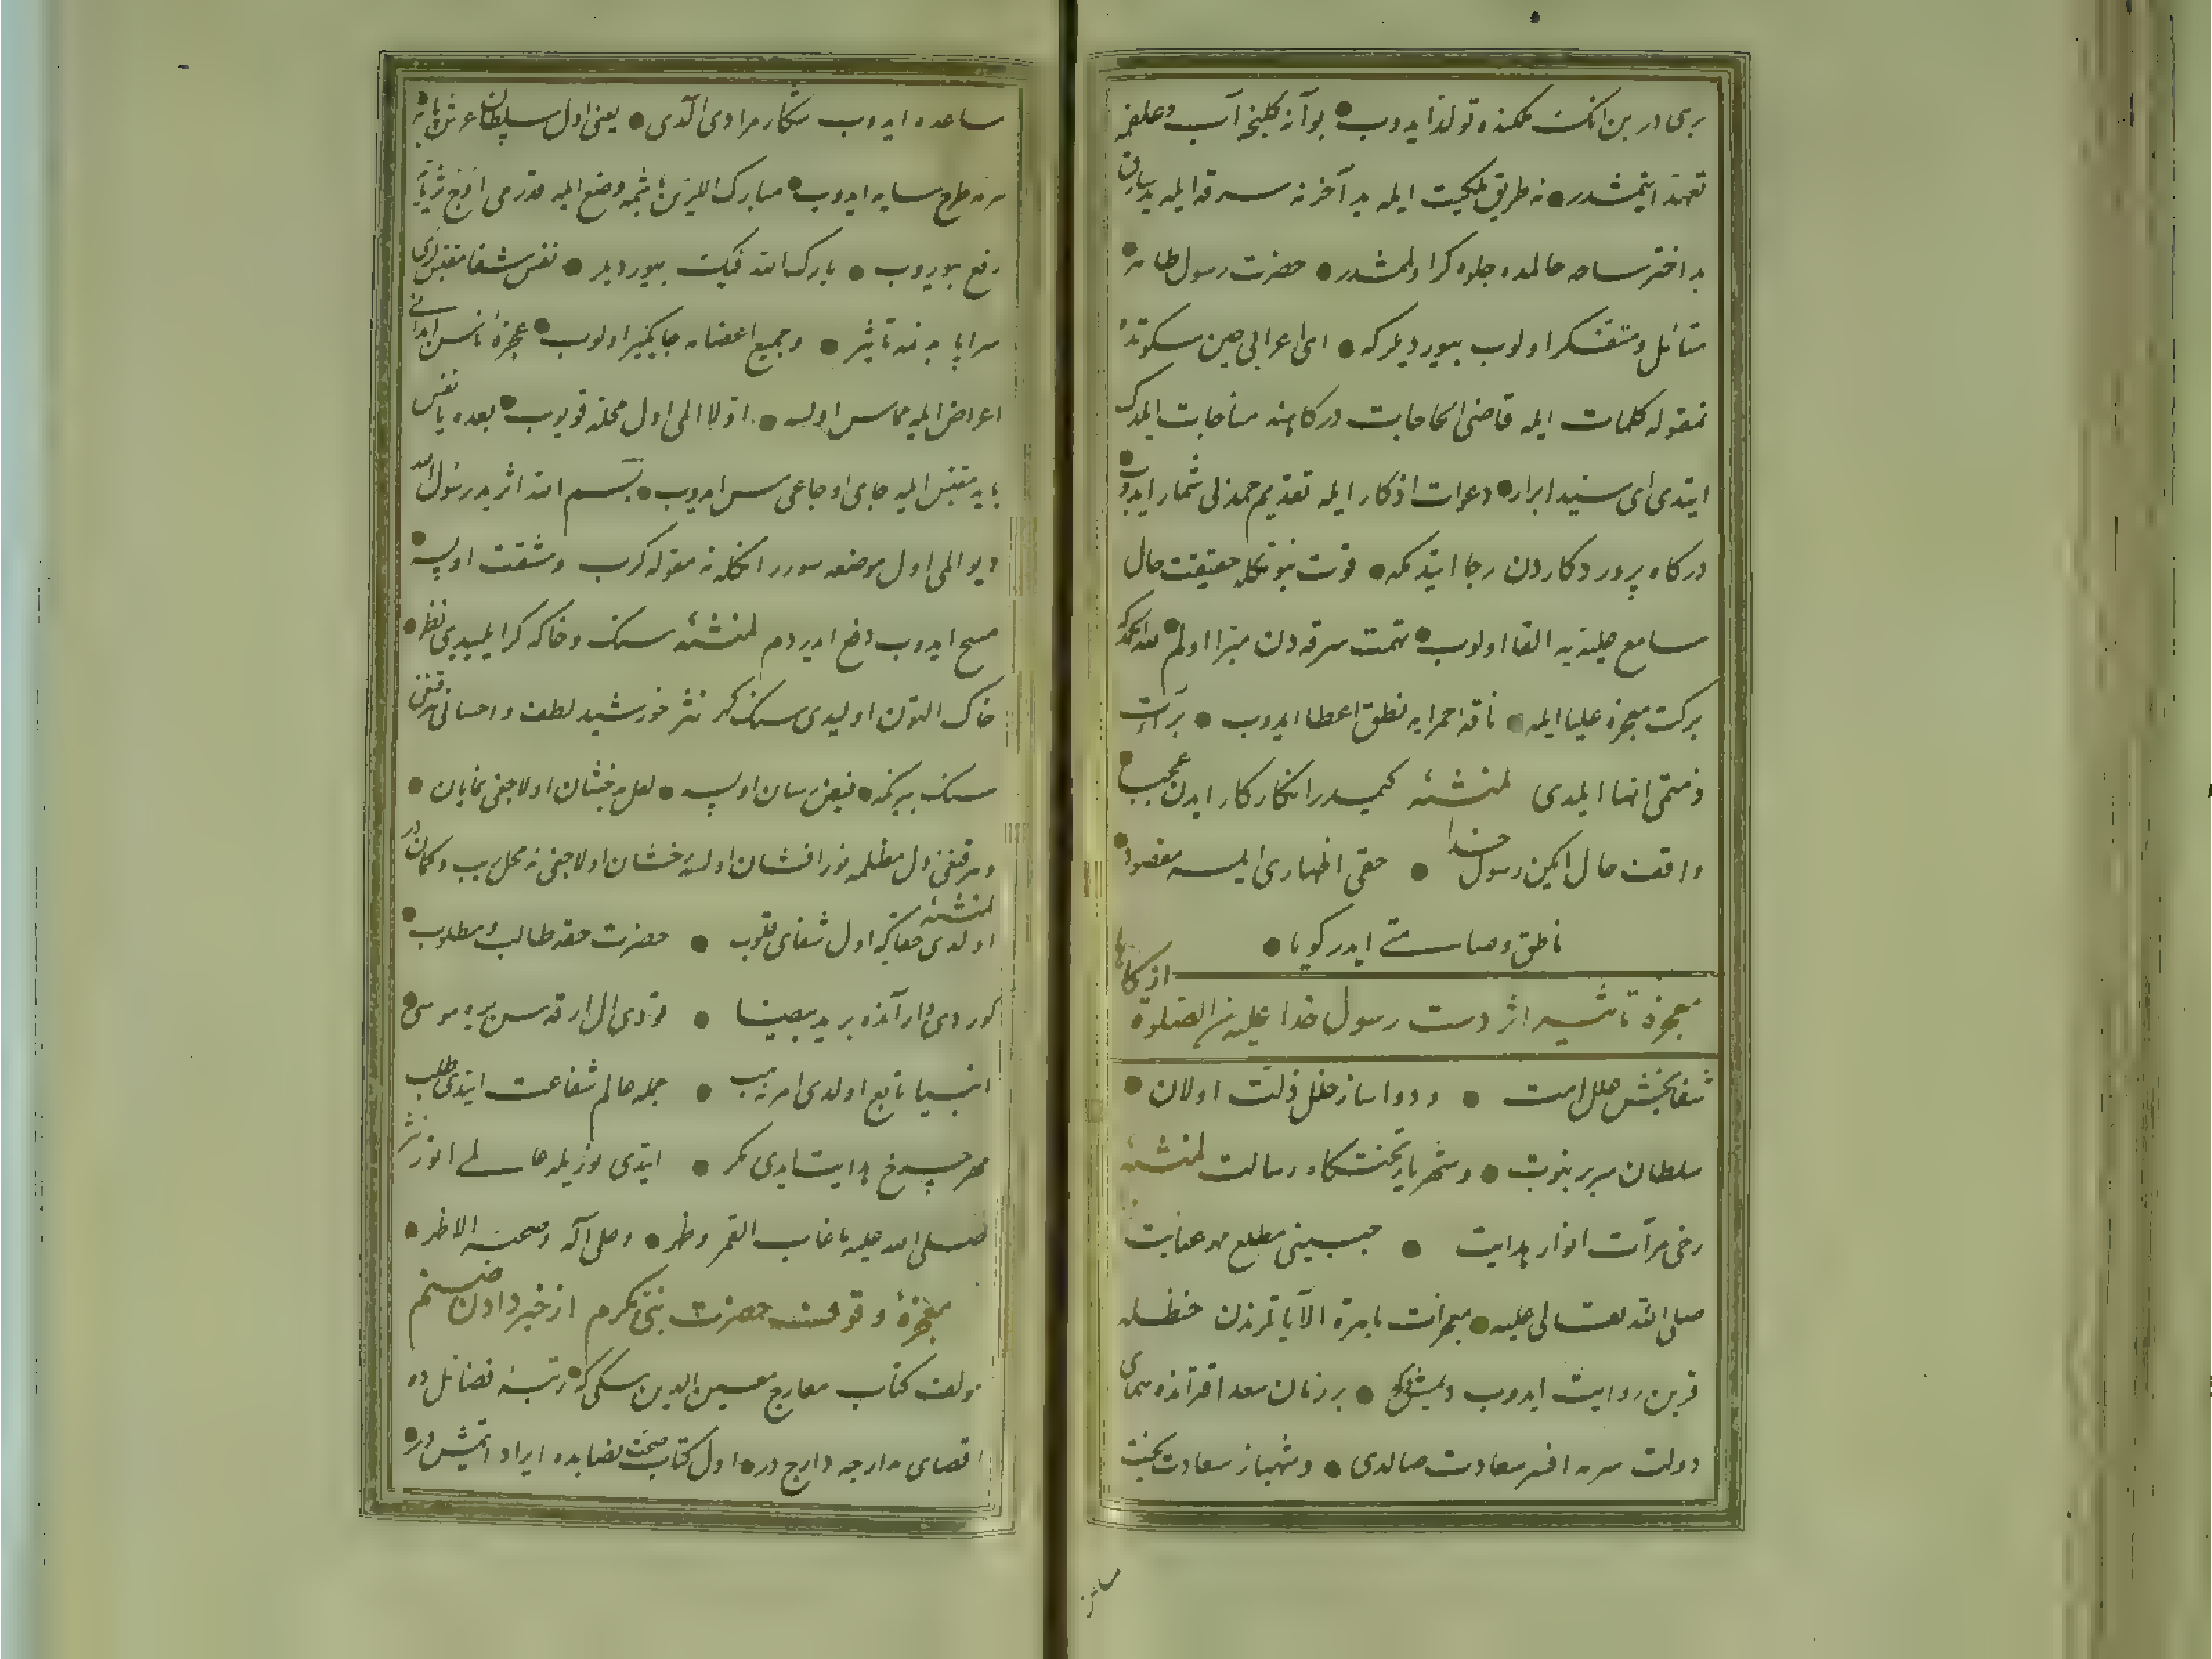 بری در بن انک ملکنده تولد ایدوب بو آنه کلنجه آب وعلفنه
تعهد ایتمشدر نه طریق ملکیت ایله ید آخر نه سرقه ایله ید سارق
ید اختر ساحه عالمده جلوه کر اولمشدر حضرت رسول طاهر
متأمل ومتفکر اولوب بیوردیلرکه ای اعرابی حین سکوتده
نمقوله کلمات ایله قاضی الحاجات درکاهنه مناجات ایلدک
ایتدی ای سید ابرار دعوات اذکار ایله تقدیم حمد بی شمار ایدوب
درکاه پروردکاردن رجا ایتدمکه قوت نبوتکله حقیقت حال
سامع علیه یه القا اولوب تهمت سرقه دن مبرا اولم
برکت معجزه علیا ایله ناقه حمرایه نطق اعطا ایدوب برآءت
ذمتمی انها ایلدی لمنشئه کیمیدر انکار کار ایدن عجب
واقف حال ایکن رسول خدا حقی اظهاری ایسه مقصود
ناطق وصامتی ایدر کویا
معجزه تأثیر اثر دست رسول خدا علیه من الصلوة ازکاها
شفابخش علل امت ودواساز خلل ذلت اولان
سلطان سریر نبوت وشهریار تختکاه رسالت لمنشئه
رخی مرآت انوار هدایت جبینی مطلع مهر عنایت
صلی الله تعالی علیه معجزات باهرة الآیاتلرندن حنظله
قرین روایت ایدوب دیمش که بر زمان سعد اقترانده همای
دولت سرمه افسر سعادت صالدی وشهباز سعادت بخت
ساعدمه ایدوب شکار مرادی آلدی یعنی اول سلطان عرش پایه
سرمه طرح سایه ایدوب مبارک اللرین باشمه وضع ایله قدرمی اوج ثریایه
رفع بیوروب بارک الله فیک بیوردیلر نفس شفا مقتبسلری
سراپا بدنمه تأثیر وجمیع اعضامه جایگیر اولوب عجزه ناسن ابدانی
اعراض ایله مماس اولسه اولا الی اول محله قویوب بعده یا نفس
یا ید مقتبس ایله جای اوجاعی مس ایدوب بسم الله اثر ید رسول الله
دیو المی اول موضعه سورر انکله نه مقوله کرب ومشقت اولسه
مسح ایدوب دفع ایدردم لمنشئه سنک وخاکه کر ایلسیدی نظر
خاک التون اولیدی سنک کهر نثر خورشید لطف واحسانی هرقنغی
سنک بیرنکه فیض رسان اولسه لعل بدخشان اولاجغی نمایان
وهرقنغی دل مظلمه نورافشان اولسه رخشان اولاجغی نه محل ریب وکماندر
لمنشئه
اولدی حقا که اول شفای قلوب حضرت حقه طالب ومطلوب
کوردی وار آنده بر ید بیضا قودی ال ارقه سن یره موسی
انبیا تابع اولدی امریه هب جمله عالم شفاعت ایتدی طلب
مهر چرخ هدایت ایدی مکر ایتدی نوریله عالمی انور نثر
صلی الله علیه ما غاب القمر وظهر وعلی آله وصحبه الاطهر
معجزهٔ وقوف حضرت نبی مکرم از خبر دادن صنم
مولف کتاب معارج معین الدین مسکین که رتبهٔ فضائلده
اقصای مدارجه دارج در اول کتاب صحت نصابده ایراد ایتمشدر